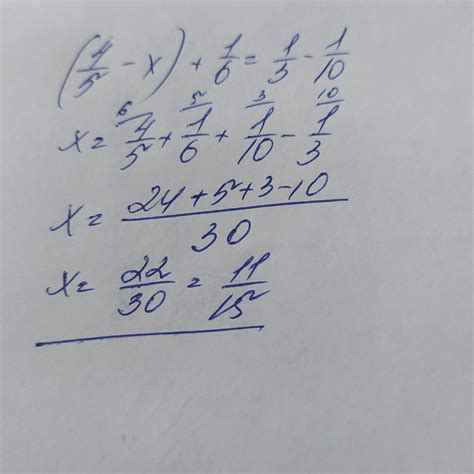 (4/5 - x) + 1/6 = 1/3 - 1/10
x = 6/ 4/5 + 5/ 1/6 + 3/ 1/10 - 10/ 1/3
x = 24+5+3-10 / 30
x = 22/30 = 11/15